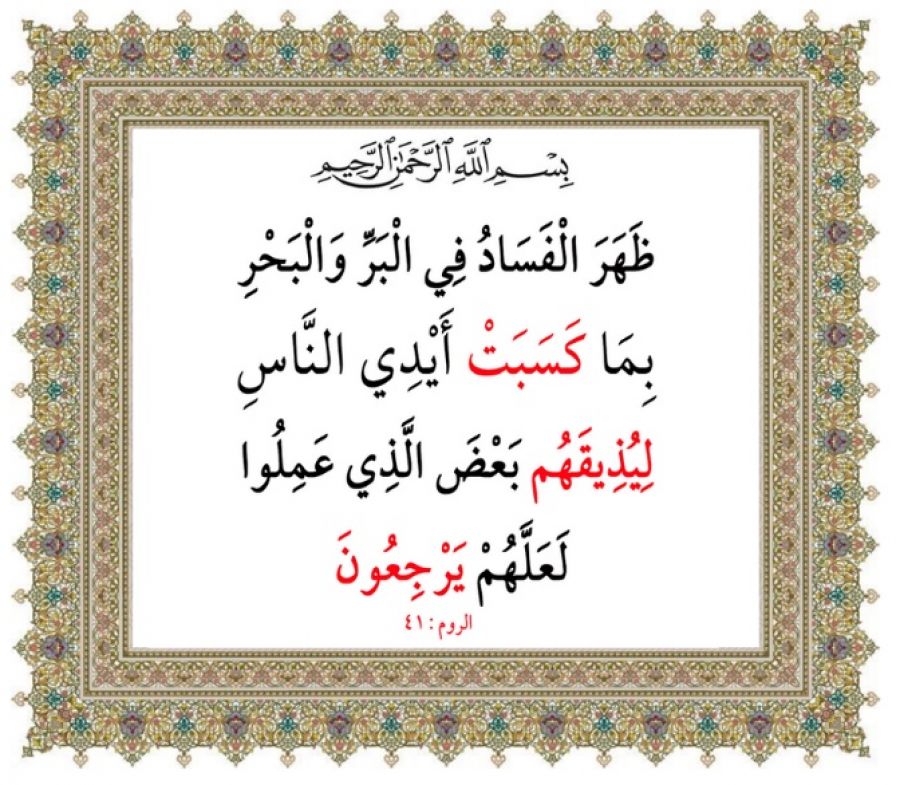 بِسْمِ ٱللَّهِ ٱلرَّحْمَٰنِ ٱلرَّحِيمِ
ظَهَرَ الْفَسَادُ فِي الْبَرِّ وَالْبَحْرِ
بِمَا كَسَبَتْ أَيْدِي النَّاسِ
لِيُذِيقَهُم بَعْضَ الَّذِي عَمِلُوا
لَعَلَّهُمْ يَرْجِعُونَ
الروم : ٤١